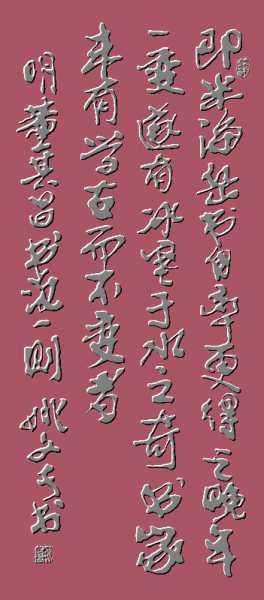 即米海岳书自率更得之晚年
一变遂有冰寒于水之奇书家
未有学古而不变者
明董其昌书论一则 姚文书